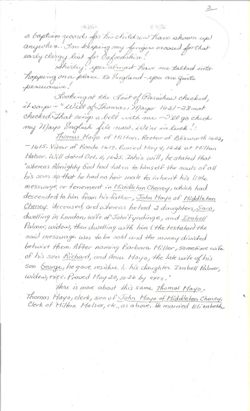 2
a baptism records for his children have shown up
anywhere. I'm keeping my fingers crossed for that
early clergy list for Oxfordshire!
Shirley: you almost have me talked into
hopping on a plane to England - you are quite
persuasive!
Looking at the list of Parishes checked,
it says - "Will of Thomas Mayo 1621-23 not
checked. That rings a bell with me - I'll go check
my Mayo English file now. We're in luck!
Thomas Mayo of Milton, Rector of
- 1625. Vicar of Buried May 5, 1626 at Milton
Will dated Oct. In his will, he stated that
"whereas Almighty God had taken to himself the souls of all
his sons so that he had no heir male to inherit his (the
messuage or tenement in Middleton Cheney, which had
descended to him from his father, John Mayo of Middleton
Cheney, deceased and whereas he had 2 daughters,
dwelling in London, wife of John and Isabell
Palmer, widow, then dwelling with him (the testator) the
said messuage was to be sold and the money divided
betwixt them. After naming Barbara Miller, sometime wife
of his son Richard, and Mayo, the late wife of his
son George, he gave residue to his daughter Isabell Palmer,
widow, exix. Proved May 1626 by exix."
There is more about this same Thomas Mayo.
Thomas Mayo, clerk, son of John Mayo of Middleton Cheney,
Clerk of Milton etc., as above. He married Elizabeth